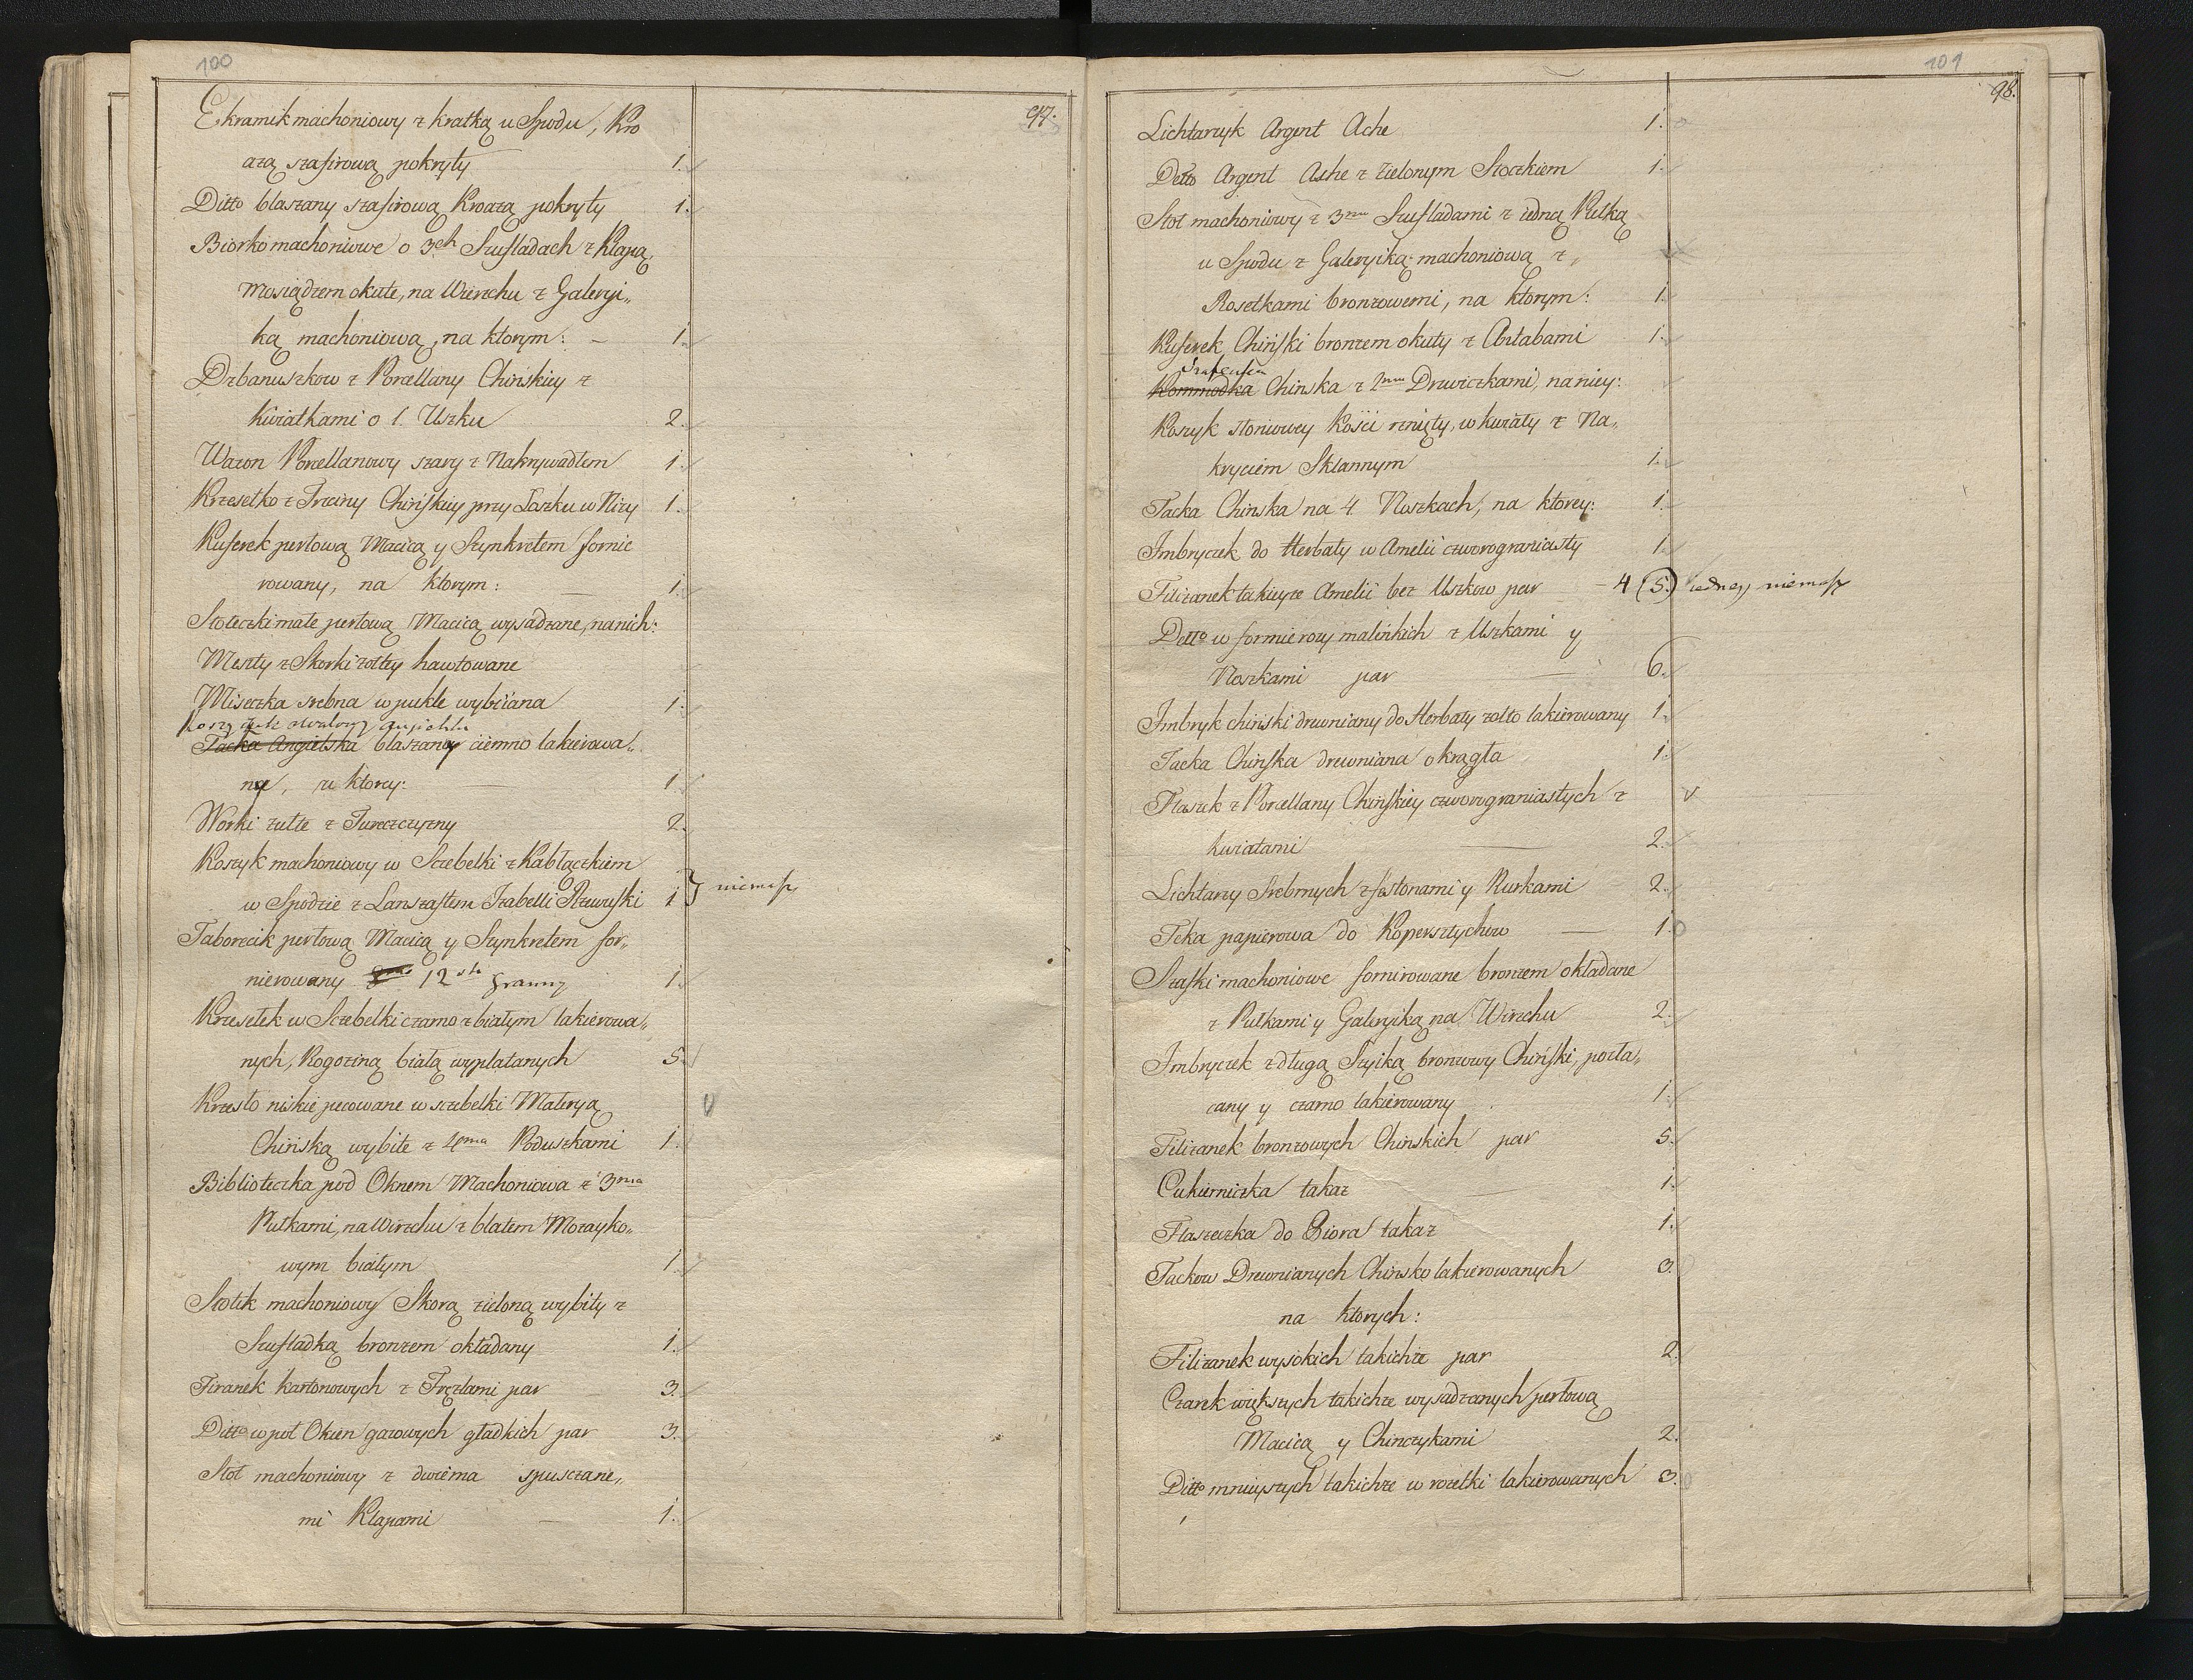 100
97.
Ekramik machoniowy z kratką u Spodu, Kro
azą szafirową pokryty 1.
Ditto blaszany szafirową Kroazą pokryty 1.
Biorko machoniowe o 3ch Szufladach z Klapą
Mosiądzem okute, na Wierzchu z Galeryi„
ką machoniową, na ktorym: 1.
Dzbanuszkow z Porcellany Chińskiey z
kwiatkami o 1. Uszku 2.
Wazon Porcellanowy szary z Nakrywadłem 1.
Krzesełko z Trzciny Chińskiey przy Łoszku w Niży 1.
Kuferek perłową Macicą y Szynkretem fornie
rowany, na ktorym: 1.
Stoleczki małe perłową Macicą wysadzane, na nich:
Meszty z Skorki żołtey hawtowane
Miseczka srebna w pukle wybiiana 1.
Koszyczek owalowy angielski
Tacka Angielska blaszany ciemno lakierowa„
ny, w ktorey: 1.
Worki żułte z Tureczczyzny 2.
Koszyk machoniowy w Szebelki z Kabłączkiem
w Spodzie z Lanszaftem Izabelli Rzewuski 1 } niemasz
Taborecik perłową Macicą y Szynkretem for„
nierowany 12sto granny 1.
Krzesełek w Szczebelki czarno z białym lakierowa„
nych, Rogoziną białą wyplatanych 5.
Krzesło niskie pecowane w szczebelki Materyą
Chińską wybite z 4ma Poduszkami 1.
Biblioteczka pod Oknem Machoniowa z 3ma
Pułkami, na Wirzchu z blatem Mozayko„
wym białym 1.
Stołek machoniowy Skorą zieloną wybity z
Szufladką bronzem okładany 1.
Firanek kartonowych z Fręzlami par 3.
Ditto w poł Okien gazowych gładkich par 3.
Stoł machoniowy z dwiema spuszczane„
mi Klapami 1.
101
98.
Lichtarzyk Argent Ache 1.
Detto Argent Ashe z Zielonym Stoczkiem 1.
Stoł machoniowy z 3ma Szufladami z iedną Pułką
u Spodu z Galeryiką machoniową z„
Rosetkami bronzowemi, na ktorym: 1.
Kuferek Chiński bronzem okuty z Antabami 1.
Szafeczka
Kommodka Chinska z 2ma Drzwiczkami, na niey:
Koszyk słoniowey Kości rznięty, w kwiaty z Na„
kryciem Sklannym 1.
Tacka Chinska na 4. Noszkach, na ktorey: 1.
Imbryczek do Herbaty w Amelii czworograniasty 1.
Filiżanek takieyże Amelii bez Uszkow par 4 (5.) iedney niemasz
Detto w formie rozy malińkich z Uszkami y
Noszkami par 6.
Imbryk chiński drewniany do Herbaty zołto lakierowany 1.
Tacka Chińska drewniana okrągła 1.
Flaszek z Porcellany Chińskiey czworograniastych z
kwiatami 2.
Lichtarzy Srebrnych z festonami y Rurkami 2.
Teka papierowa do Kopersztychow 1.
Szafki machoniowe fornirowane bronzem okładane
z Pułkami y Galeryiką na Wirzchu 2.
Imbryczek z długą Szyiką bronzowy Chiński, pozła„
cany y czarno lakierowany 1.
Filiżanek bronzowych Chińskich par 5.
Cukierniczka takaż 1.
Flaszeczka do Piora takaż 1.
Tackow Drewnianych Chińsko lakierowanych 3.
na ktorych:
Filiżanek wysokich takichże par 2.
Czarek większych takichże wysadzanych perłową
Macicą y Chinczykami 2.
Ditto mnieyszych takichże w rozetki lakierowanych 3.